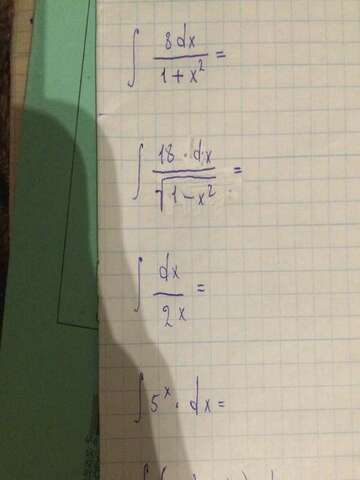 ∫ 8dx / 1 + x² =
∫ 18 · dx / √1 - x² =
∫ dx / 2x =
∫ 5ˣ · dx =